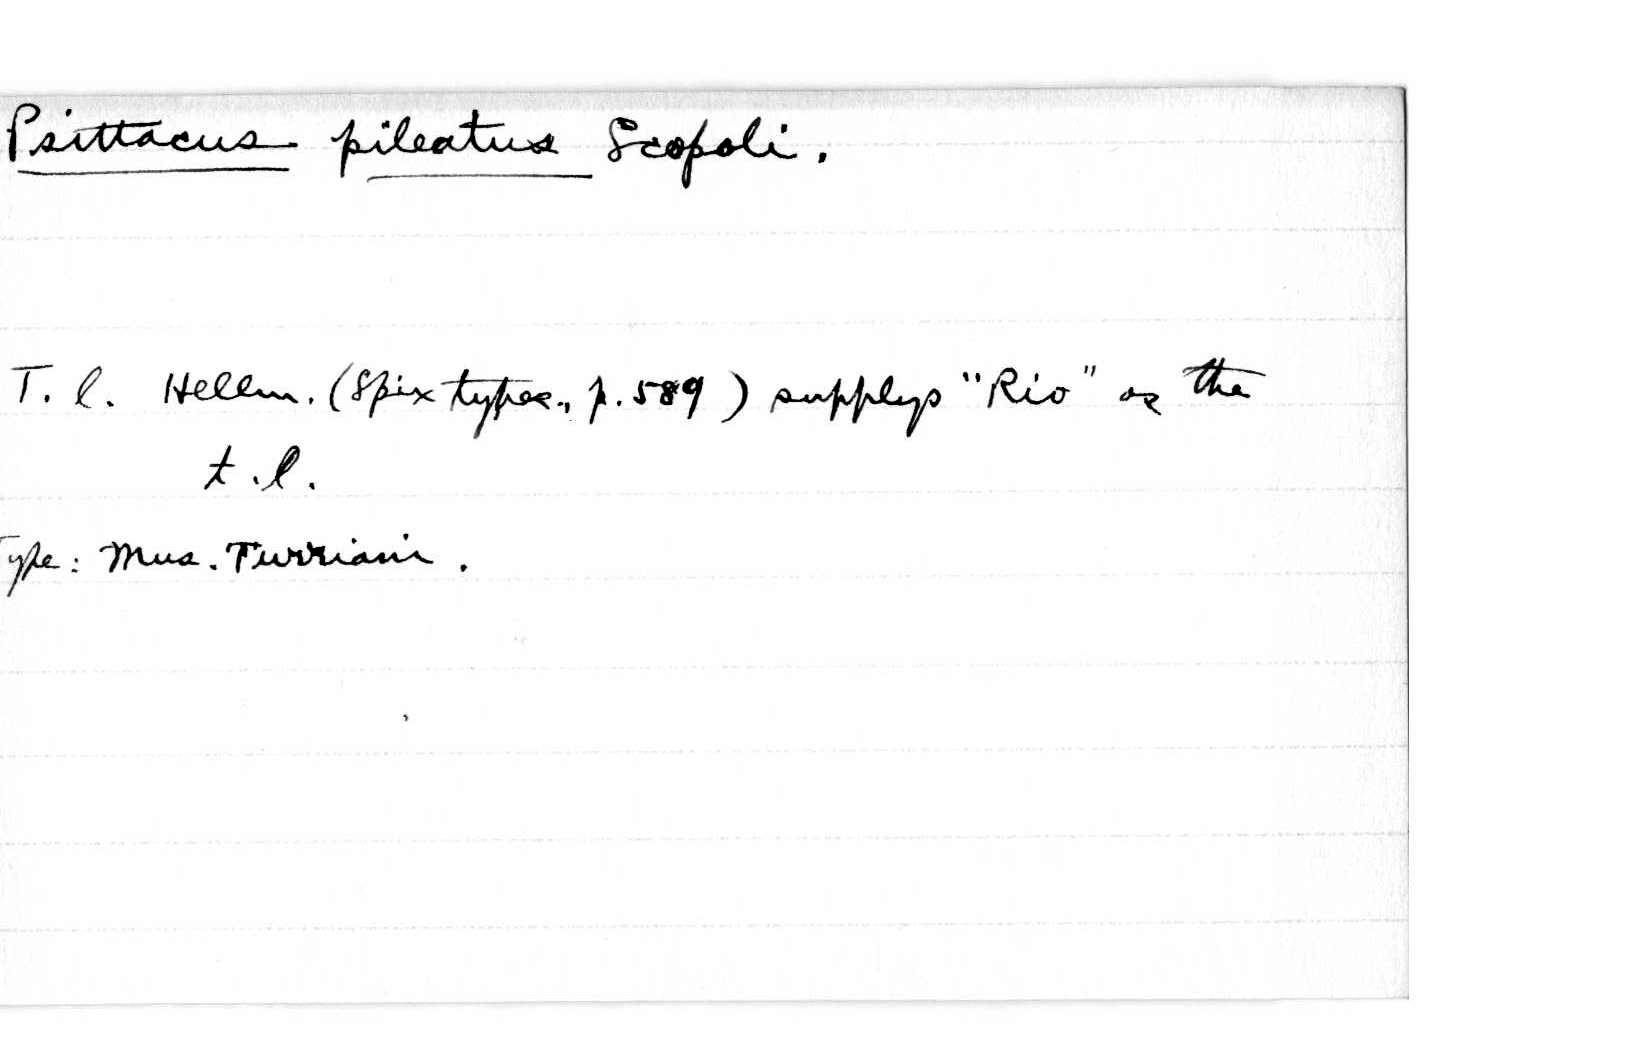 Psittacus pileatus Scopoli.
T. l. Hellm. (Spix types., p. 589) supplys "Rio" as the
t.l.
Type: Mus. Turriani.